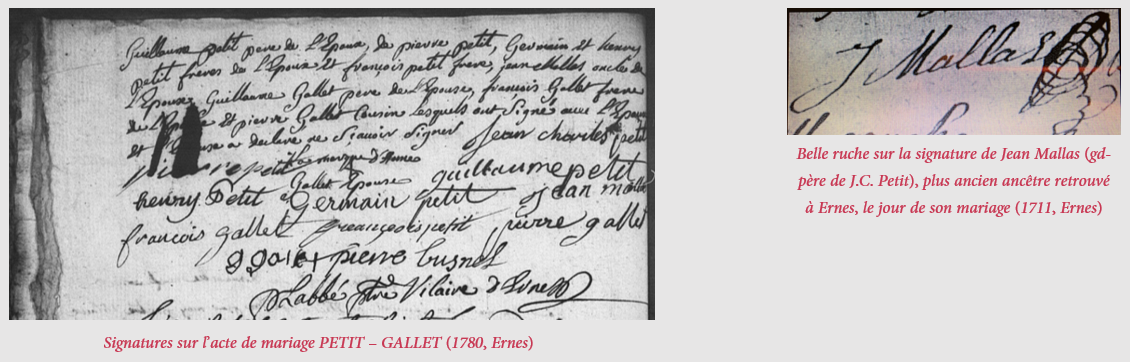 Guillaume petit pere de L'Epoux, de pierre petit, Germain et henry
petit freres de L'Epoux et françois petit frere, jean Mallas oncle de
L'Epoux, Guillaume Gallet pere de L'Epouse, francois Gallet frere
de L'Epouse et pierre Gallet Cousin lesquels ont Signé avec L'Epoux
et L'Epouse a declaré ne Scavoir Signer Jean charles petit
pierre petit La marque d'Anne guillaume petit
Gallet Epouse
henry Petit Germain petit jean mallas
francois gallet françois petit pierre gallet
pierre busnel
Labbé ptre Vicaire d'Ernes
Signatures sur l'acte de mariage PETIT – GALLET (1780, Ernes)
J Mallas
Belle ruche sur la signature de Jean Mallas (gd-
père de J.C. Petit), plus ancien ancêtre retrouvé
à Ernes, le jour de son mariage (1711, Ernes)